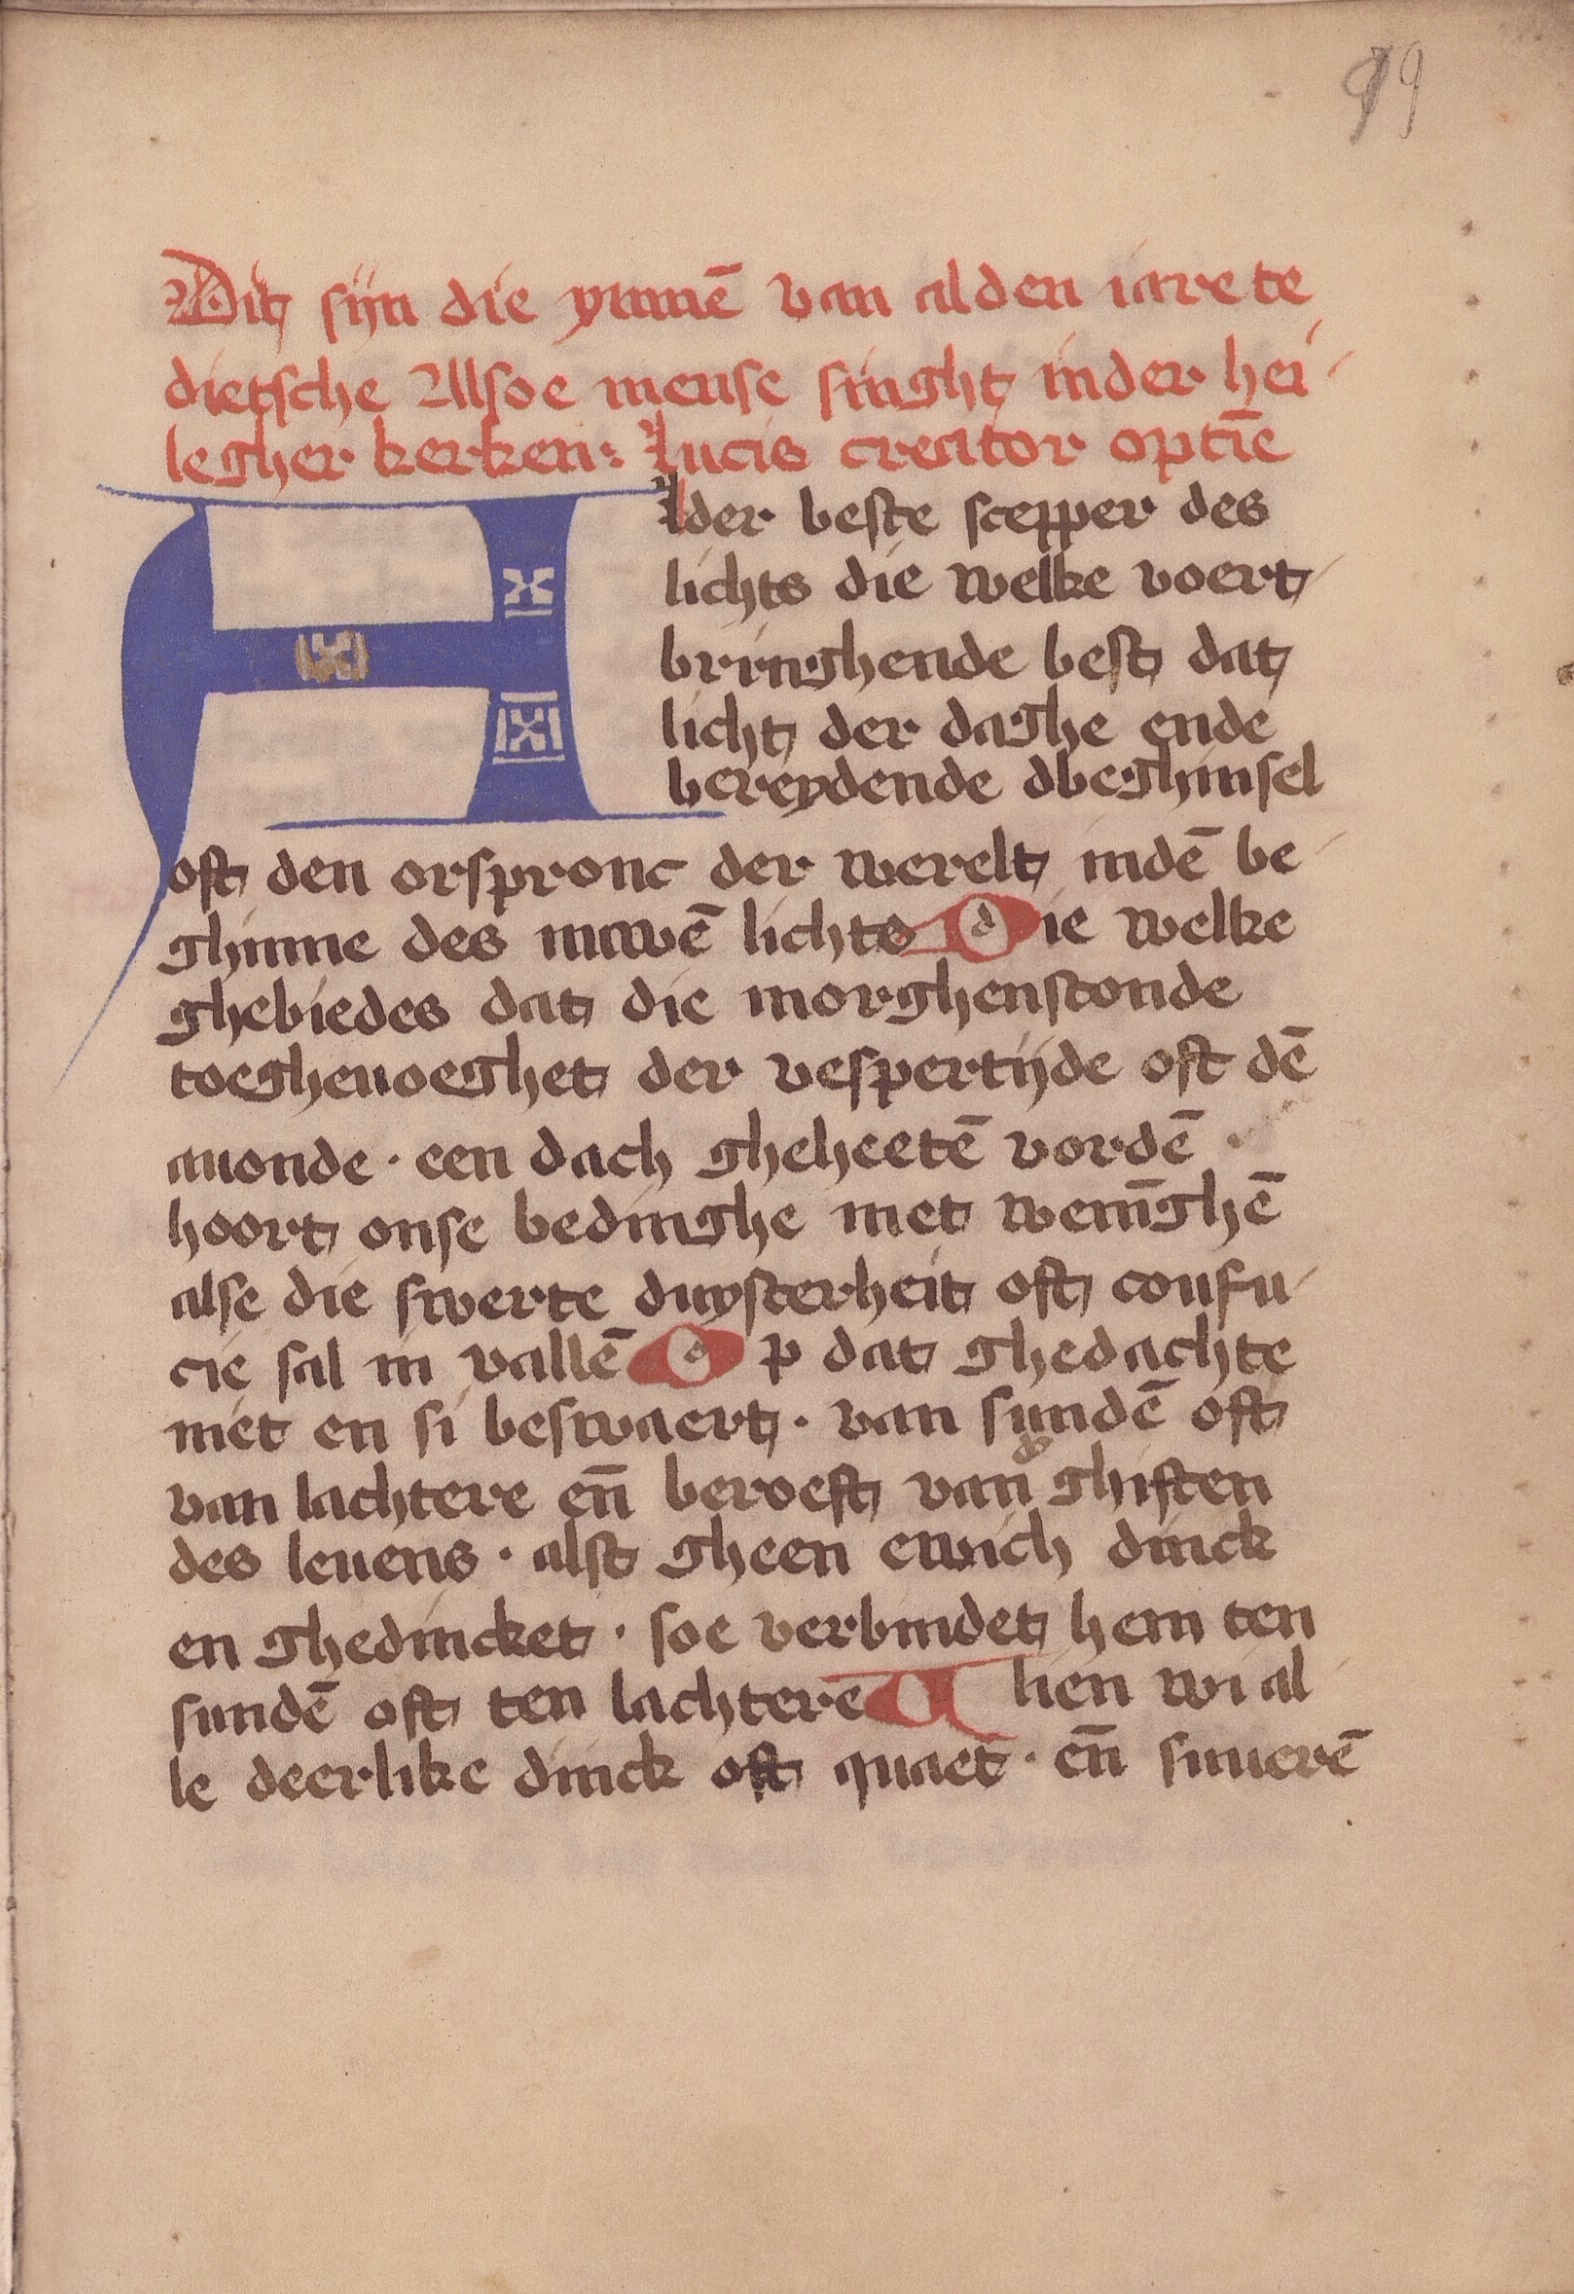 99
Dit sijn die ymmē van alden iare te
dietsche Alsoe mense singht inder hei
legher kerken: Lucis creator optīe
Alder beste scepper des
lichts die welke voert
bringhende best dat
licht der daghe ende
bereydende dbeghinsel
oft den orspronc der werelt indē be
ghinne des nuwē lichts Die welke
ghebiedes dat die morghenstonde
toeghevoeghet der vespertijde oft dē
auonde · een dach gheheetē vordē ·
hoort onse bedinghe met wenīghē
alse die swerte duysterheit oft confu
cie sal in vallē Op dat ghedachte
niet en si beswaert · van sundē oft
van lachtere en̄ beroeft van ghiften
des leuens · alst gheen ewich dinck
en ghedincket · soe verbindet hem ten
sundē oft ten lachterē Alien wi al
le deerlike dinck oft quaet · en̄ suuerē